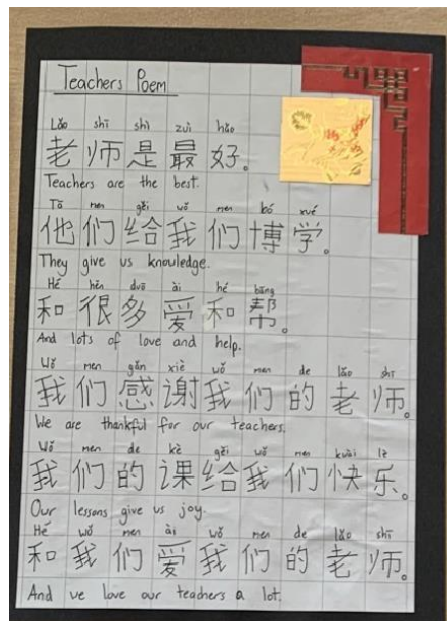 Teachers Poem
Lǎo shī shì zuì hǎo
老师是最好。
Teachers are the best.
Tā men gěi wǒ men bó xué
他们给我们博学。
They give us knowledge.
Hé hěn duō ài hé bāng
和很多爱和帮。
And lots of love and help.
Wǒ men gǎn xiè wǒ men de lǎo shī
我们感谢我们的老师。
We are thankful for our teachers.
Wǒ men de kè gěi wǒ men kuài lè
我们的课给我们快乐。
Our lessons give us joy.
Hé wǒ men ài wǒ men de lǎo shī
和我们爱我们的老师。
And we love our teachers a lot.